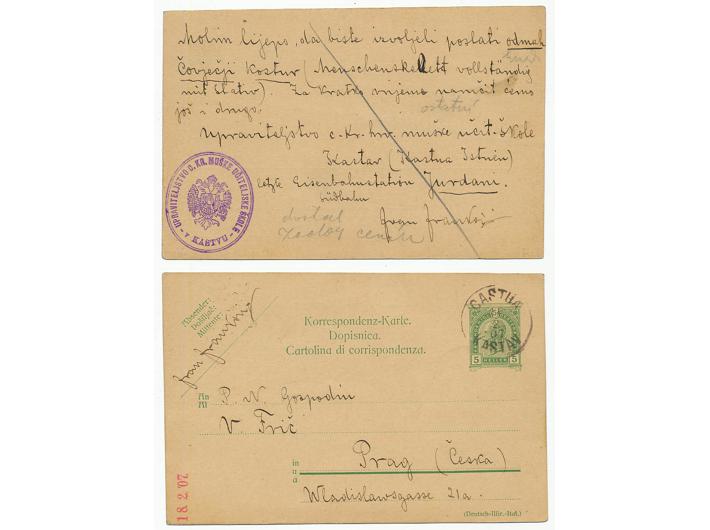 Molim lijepo, da biste izvoljeli poslati odmah
Čovječji Kostur (Menschenskelett vollständig
mit Statw). Za kratko vrijeme naručit ćemo
još i drugo.
Upraviteljstvo c. kr. hrv. muške učit. škole
Kastav (Kastua Istrien)
letzte Eisenbahnstation Jurdani.
Südbahn
Fran Franković
dostal
zaslat cenu
UPRAVITELJSTVO C. KR. MUŠKE UČITELJSKE ŠKOLE
v KASTVU
Korrespondenz-Karte.
Dopisnica.
Cartolina di corrispondenza.
Absender:
Došiljač:
Mittente:
Fran Franković
CASTUA
KASTAV
5 HELLER 5
An
Al
P. N. Gospodin
V. Frič
in
u
a
Prag (Česka)
Wladislawsgasse 21a.
18.2.07
(Deutsch-Illir.-Ital.)